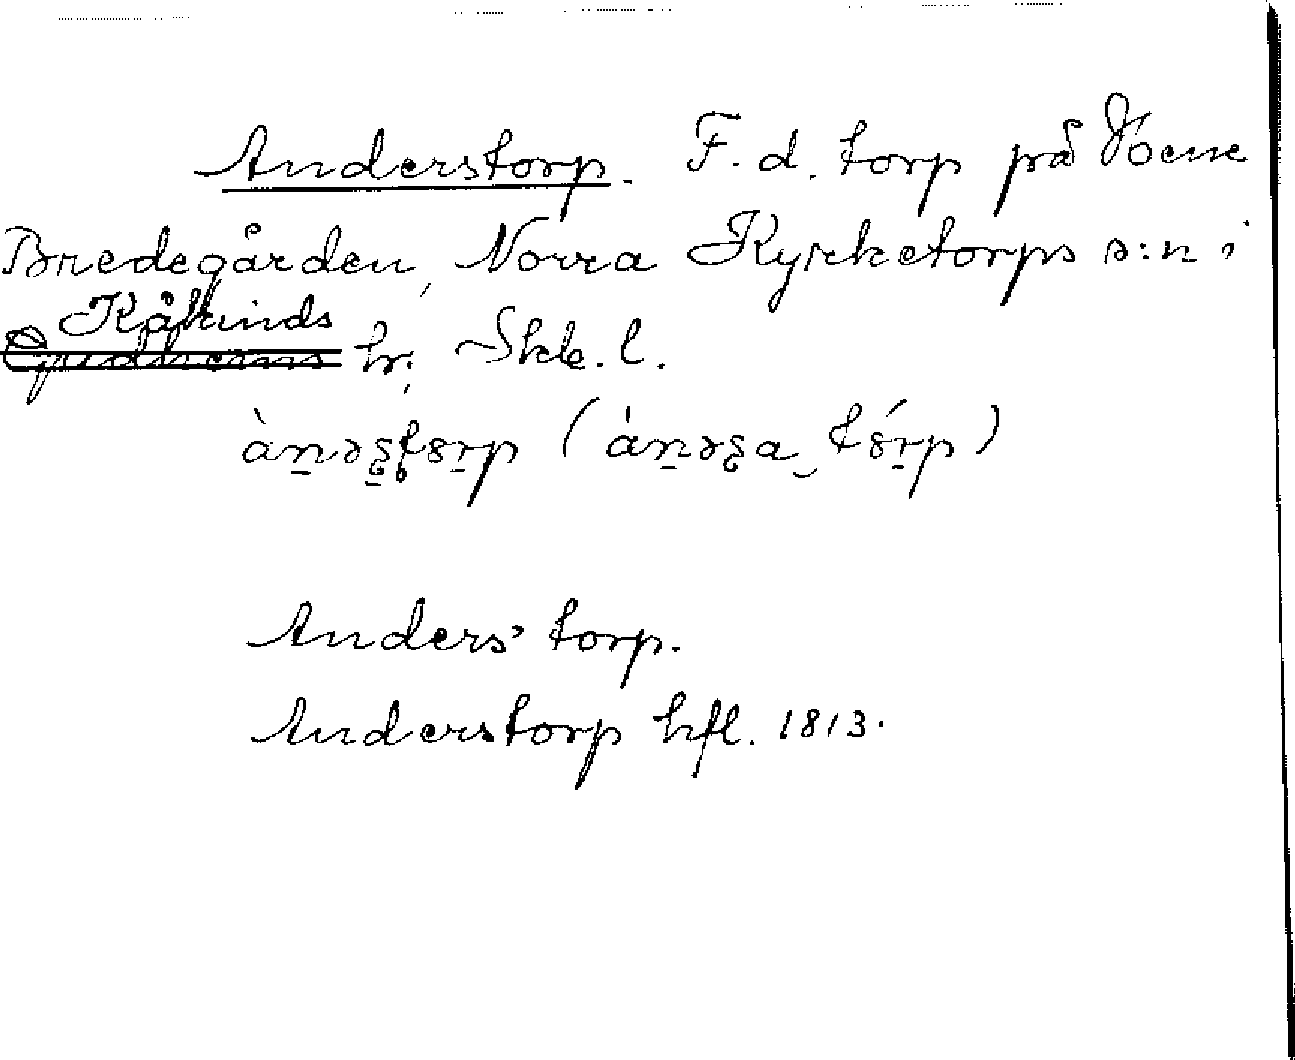 Anderstorp. F.d. torp på Voene
Bredegården, Norra Kyrketorps s:n i
Kåkinds
Gudhems hr, Skb. l.
Anders' torp.
Anderstorp hfl. 1813.